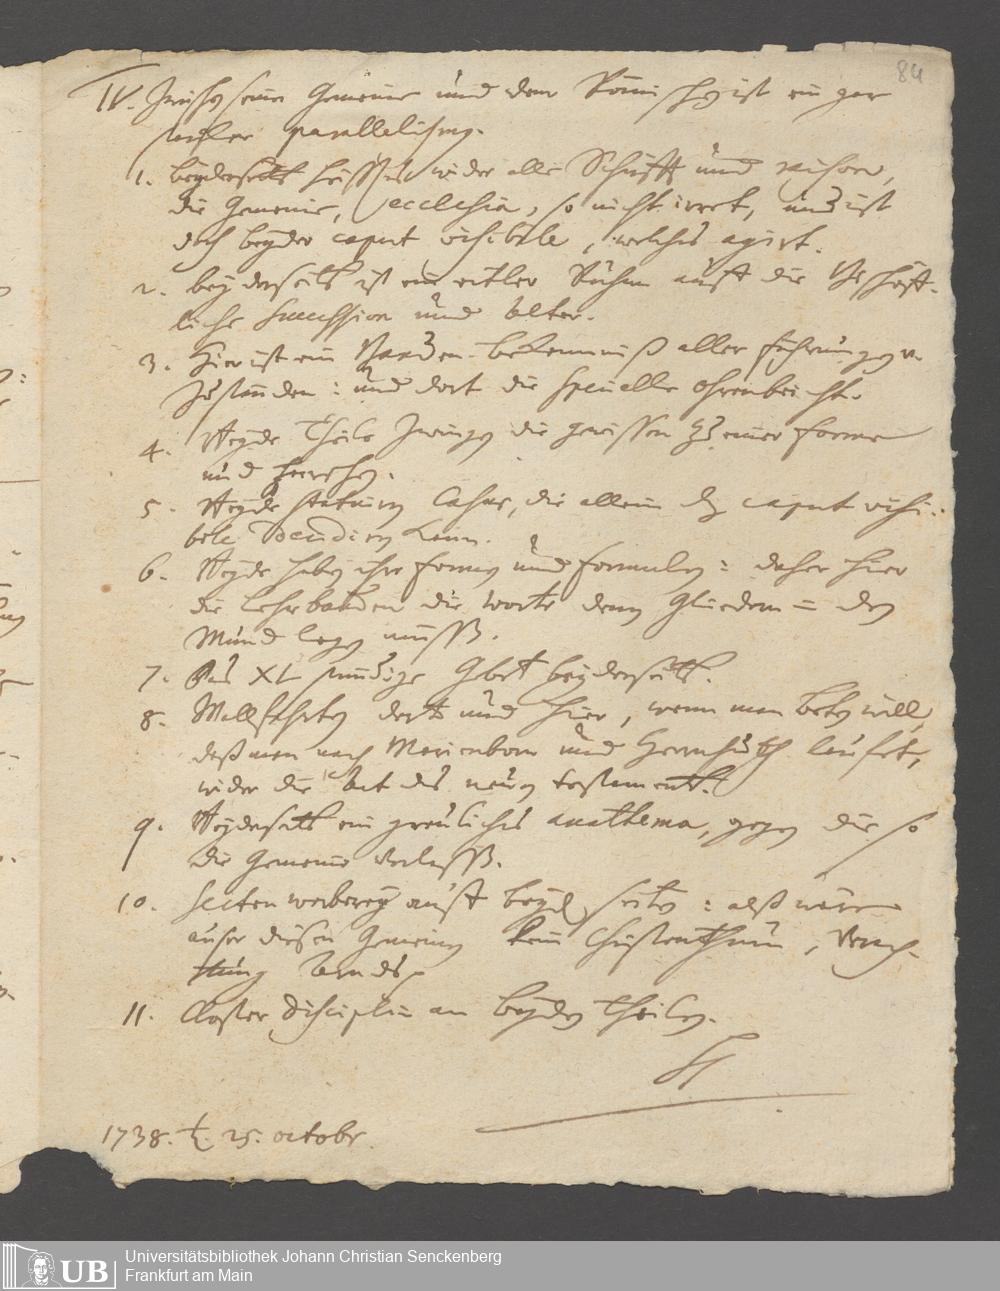 84
IV. Zwischen seiner Gemeine und der Römischen ist ein gar
parallelismus.
1. beyderseits heisset wider alle Schrifft und raison,
die Gemeine, ecclesia, so nicht irret, und ist
doch beyder caput visibile, welches agirt.
2. beyderseits ist ein eitler Ruhm auff die Bischöff-
liche Succession und Alter.
3. Hier ist ein Banden-bekenntniß aller führungen u.
Zuständen: und dort die specielle Ohrenbeicht.
4. Beyde Theile zwingen die gewissen zu einer forme
und herrschen.
5. Beyde statuiren Casus, die allein das caput visi-
bile kann.
6. Beyde haben ihre formen und formuln: daher hier
die die worte denen Gliedern in den
Mund legen muß.
7. Das XL stündige Gebet beyderseits.
8. Wallfahrten dort und hier, wenn man beten will,
daß man nach Marienborn und Herrnhuth laufet,
wider die Art des neuen testaments.
9. Beyderseits ein greuliches anathema, gegen die so
die Gemeine verlassen.
10. Secten werberey auff beyden seiten: alß wäre
außer diesen Gemeinen kein Christenthum,

11. Closter disciplin an beyden Theilen.
1738. 25. octobr.
UB
Universitätsbibliothek Johann Christian Senckenberg
Frankfurt am Main